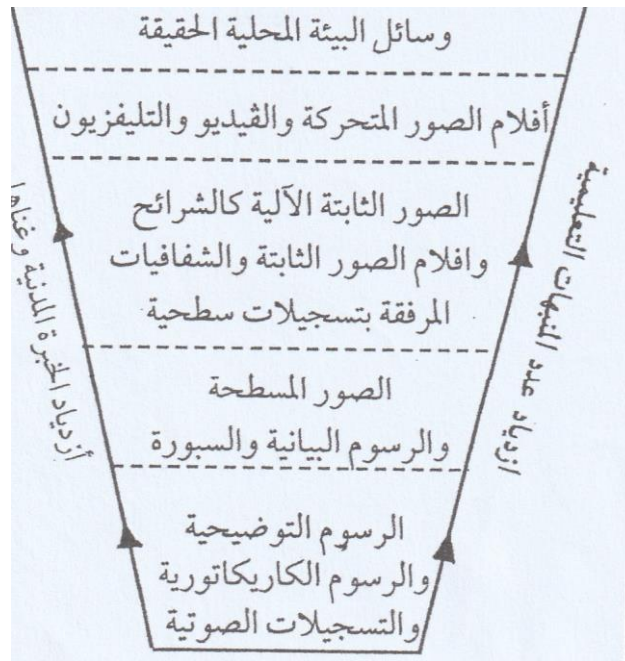 وسائل البيئة المحلية الحقيقة
أفلام الصور المتحركة والڤيديو والتليفزيون
الصور الثابتة الآلية كالشرائح
وافلام الصور الثابتة والشفافيات
المرفقة بتسجيلات سطحية
الصور المسطحة
والرسوم البيانية والسبورة
الرسوم التوضيحية
والرسوم الكاريكاتورية
والتسجيلات الصوتية
ازدياد عدد المنبهات التعليمية
أزدياد الخبرة المدنية وغناها